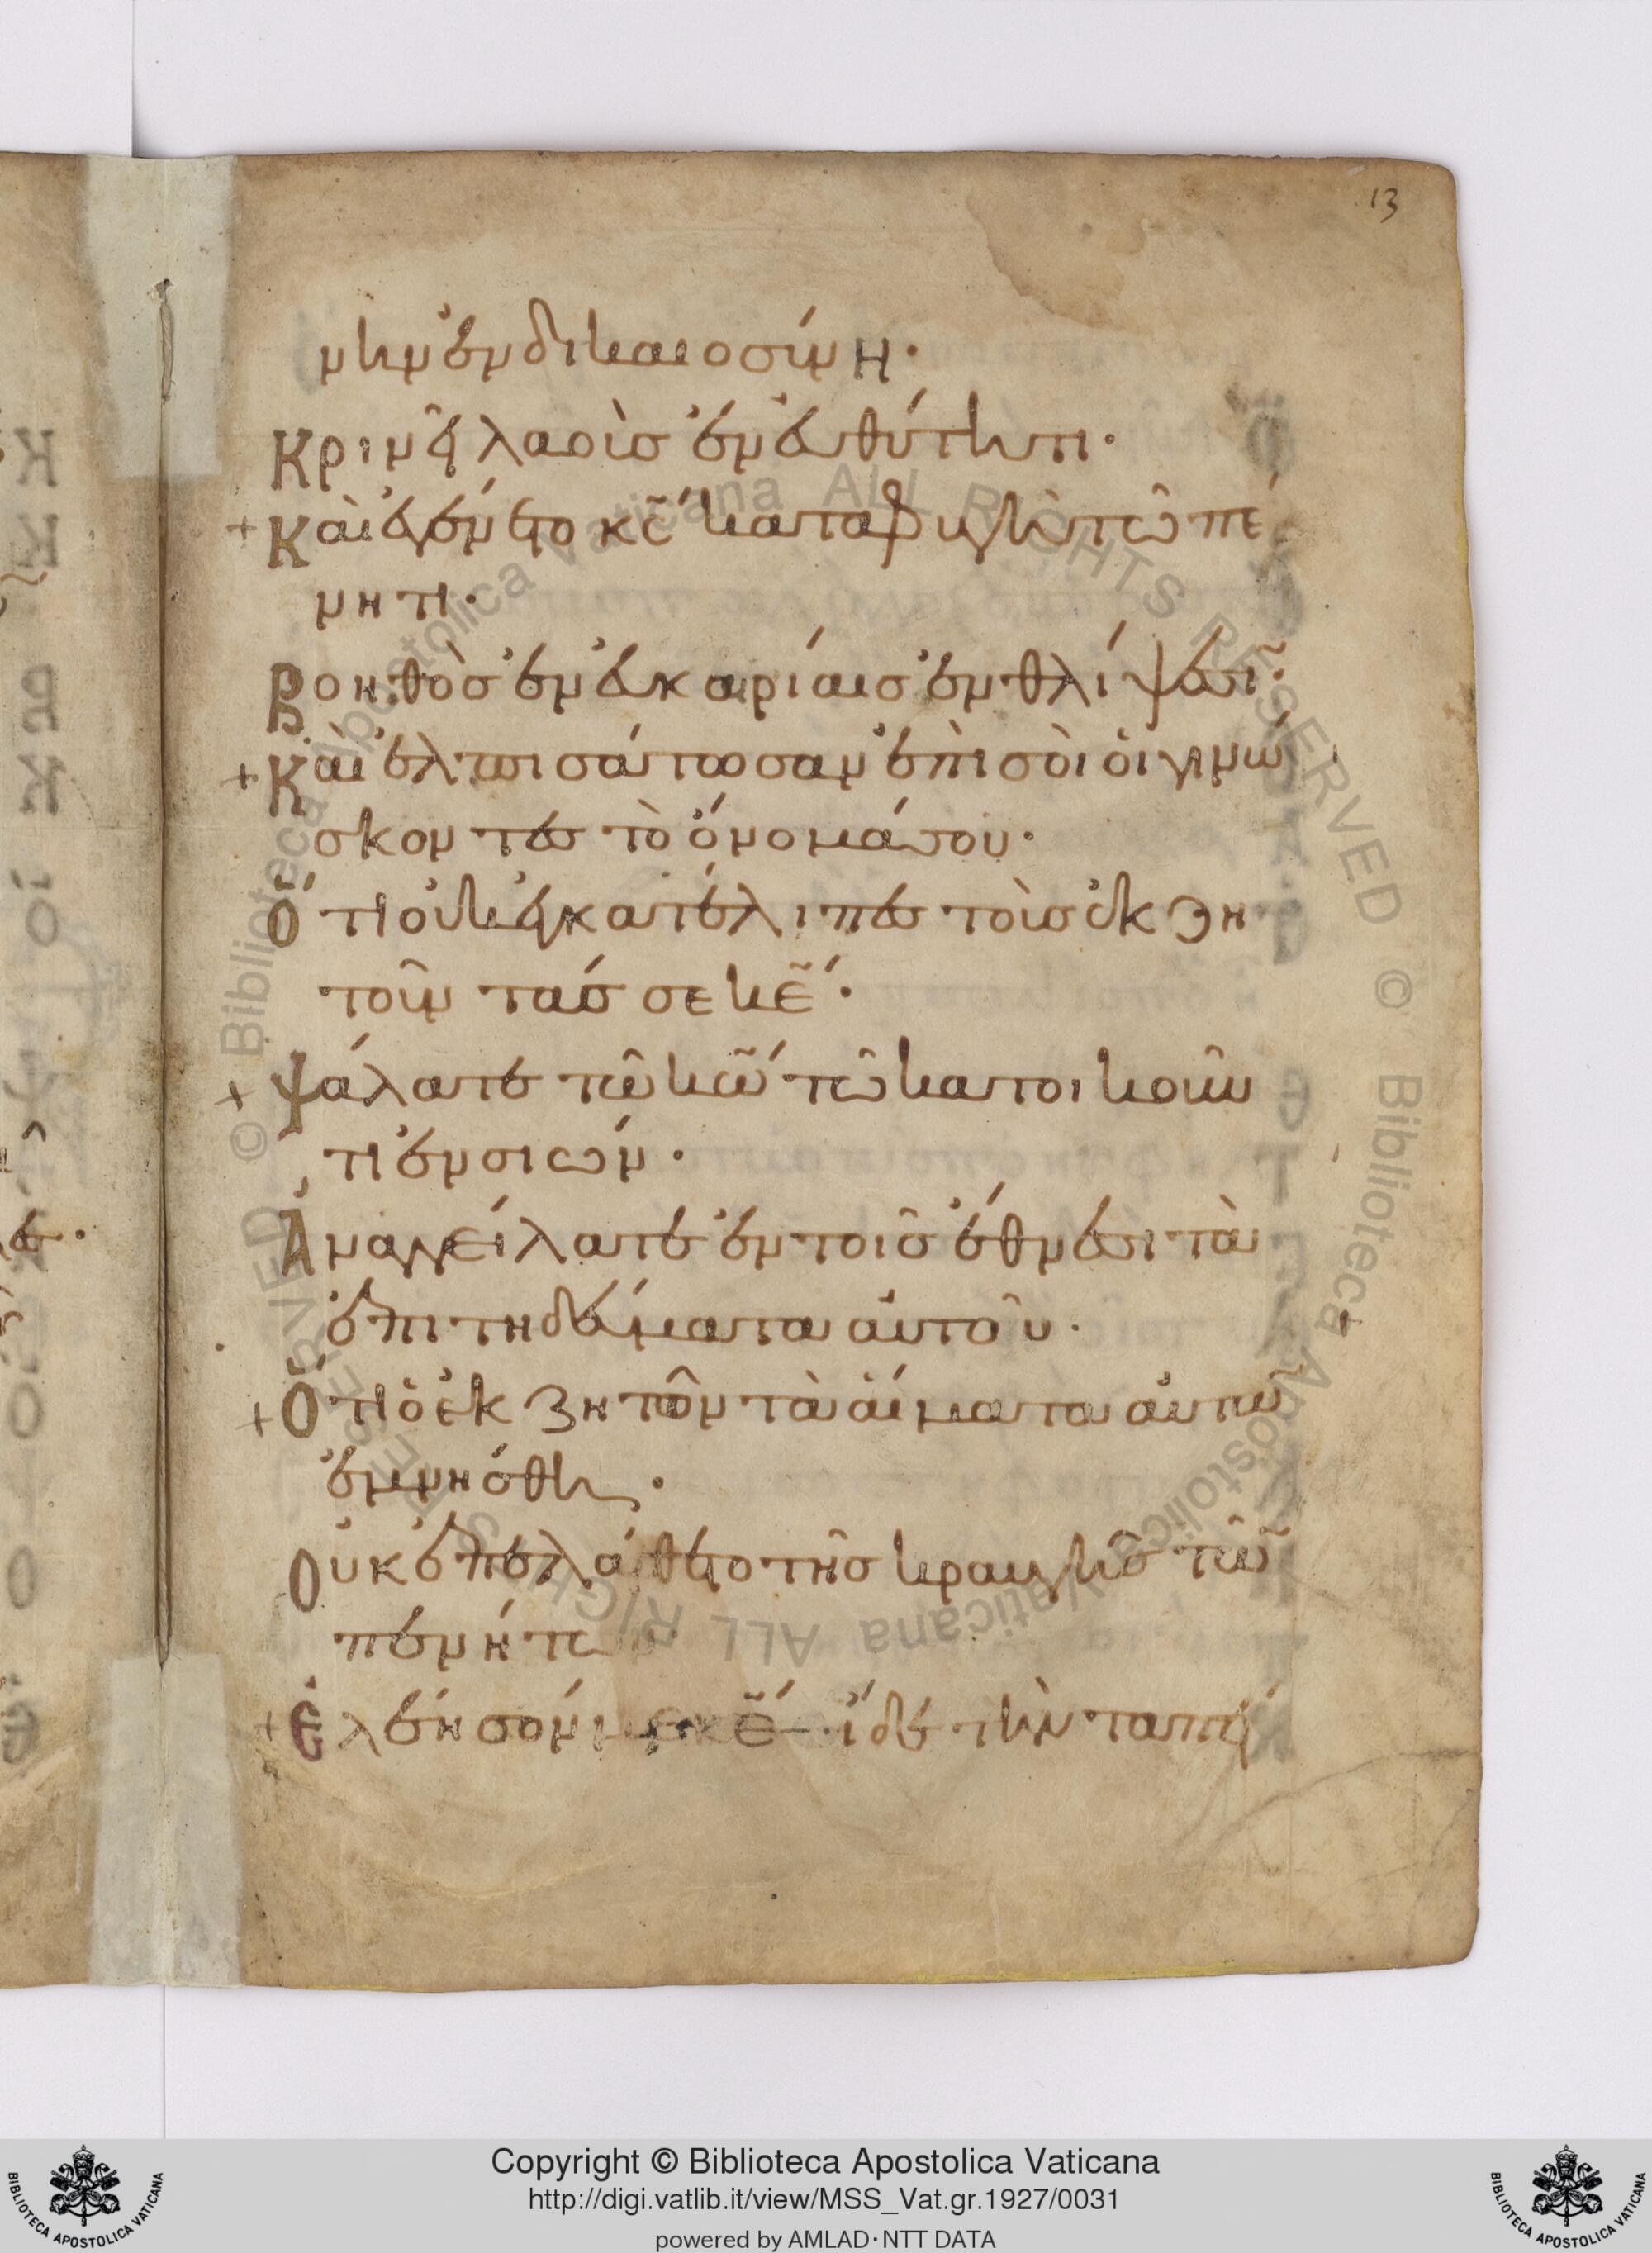 13
μένην ἐν δικαιοσύνη·
Κρινεῖ λαοὺς ἐν εὐθύτητι·
+ Καὶ ἐγένετο κ̅ς̅ καταφυγὴ τῶ πέ
νητι·
Βοηθὸς ἐν εὐκαιρίαις ἐν θλίψεσι·
+ Καὶ ἐλπισάτωσαν ἐπὶ σοὶ οἱ γινώ
σκοντες τὸ ὄνομά σου·
Ὅτι οὐκ ἐγκατέλιπες τοὺς ἐκζη
τοῦντάς σε κ̅ε̅·
+ Ψάλατε τῶ κ̅ω̅ τῶ κατοικοῦν
τι ἐν σιών·
Ἀναγγείλατε ἐν τοῖς ἔθνεσι τὰ
ἐπιτηδεύματα αὐτοῦ·
+ Ὅτι ὁ ἐκζητῶν τὰ αἵματα αὐτῶ̅
ἐμνήσθη·
Οὐκ ἐπελάθετο τῆς κραυγῆς τῶ̅
πενήτων
+ Ἐλέησόν με κ̅ε̅ ἴδε τὴν ταπεί
© Biblioteca Apostolica Vaticana ALL RIGHTS RESERVED © Biblioteca Apostolica Vaticana ALL RIGHTS RESERVED
Copyright © Biblioteca Apostolica Vaticana
http://digi.vatlib.it/view/MSS_Vat.gr.1927/0031
powered by AMLAD·NTT DATA
BIBLIOTECA APOSTOLICA VATICANA
BIBLIOTECA APOSTOLICA VATICANA